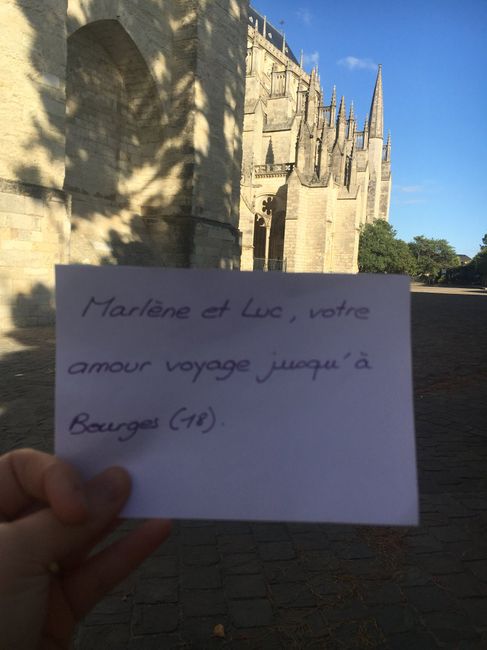 Marlène et Luc, votre
amour voyage jusqu'à
Bourges (18).